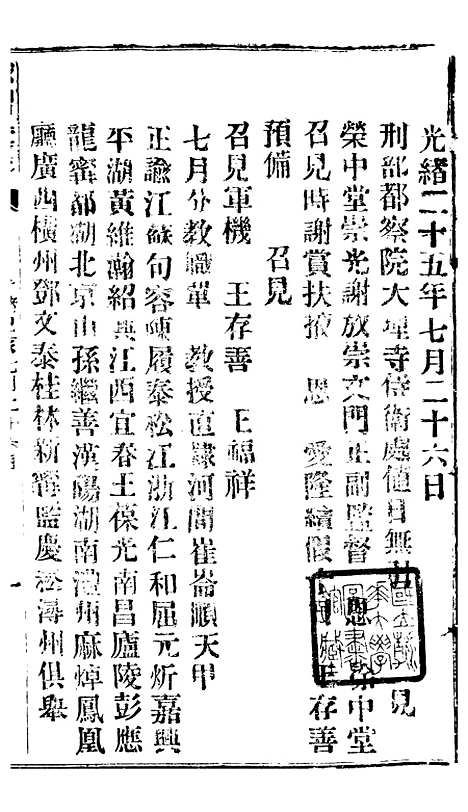 光緒二十五年七月二十六日
刑部都察院大理寺侍衛處值日無引 見
榮中堂崇光謝放崇文門正副監督 恩 榮中堂
召見時謝賞扶掖 恩 愛隆續假 王存善
預備 召見
召見軍機 王存善 王福祥
七月分教職單 教授直隸河間崔崙順天甲
正諭江蘇句容陳履泰松江浙江仁和屈元炘嘉興
平湖黃維瀚紹興江西宜春王葆光南昌廬陵彭應
龍寗都湖北京山孫繼善漢陽湖南澧州麻焯鳳凰
廳廣西橫州鄧文泰桂林新寗監慶松潯州俱舉